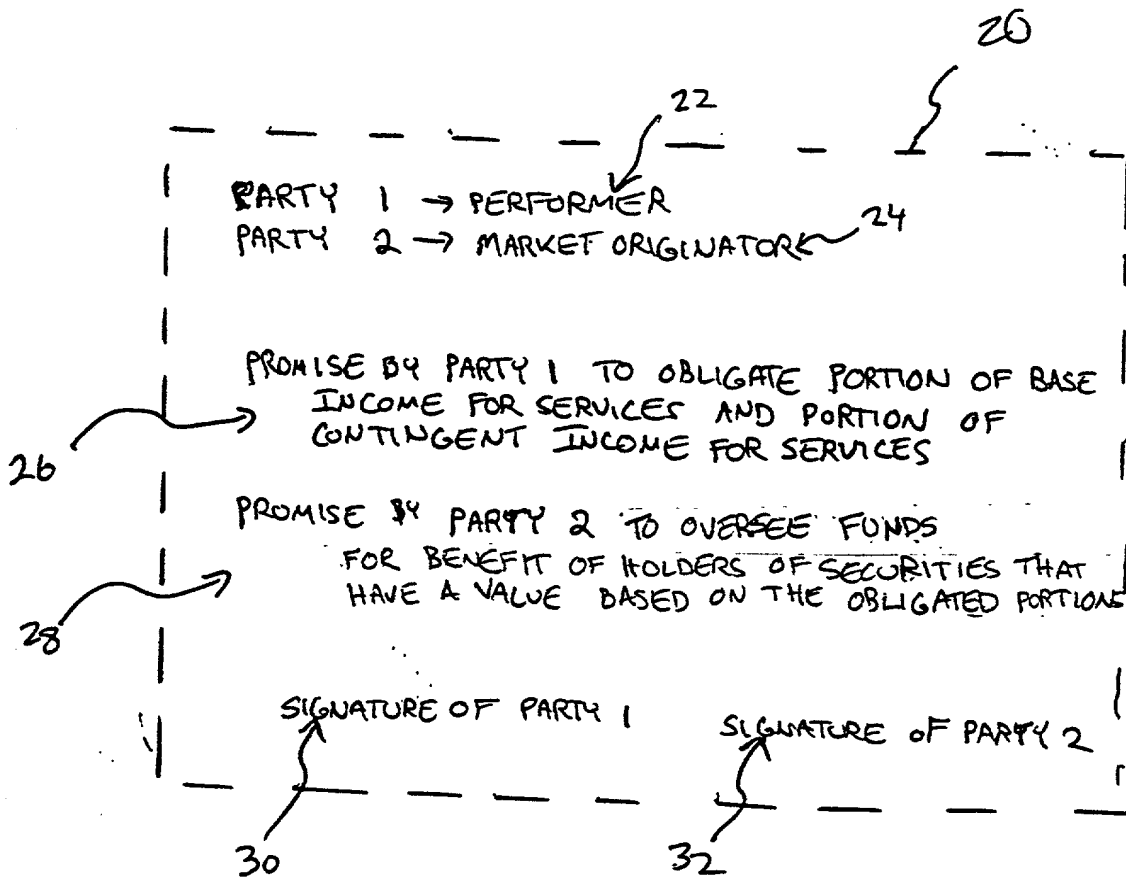 20
22
PARTY 1 → PERFORMER
PARTY 2 → MARKET ORIGINATOR 24
PROMISE BY PARTY 1 TO OBLIGATE PORTION OF BASE
INCOME FOR SERVICES AND PORTION OF
CONTINGENT INCOME FOR SERVICES
26
PROMISE BY PARTY 2 TO OVERSEE FUNDS
FOR BENEFIT OF HOLDERS OF SECURITIES THAT
HAVE A VALUE BASED ON THE OBLIGATED PORTIONS
28
SIGNATURE OF PARTY 1
SIGNATURE OF PARTY 2
30
32